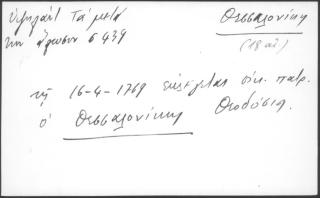 Ὑψηλάντ Τὰ μετὰ
την ἅλωσιν σ 439
Θεσσαλονίκη
(18 αἰ)
τῇ 16-4-1769 ἐκλέγεται οἰκ. πατρ.
ὁ Θεσσαλονίκης Θεοδόσιος